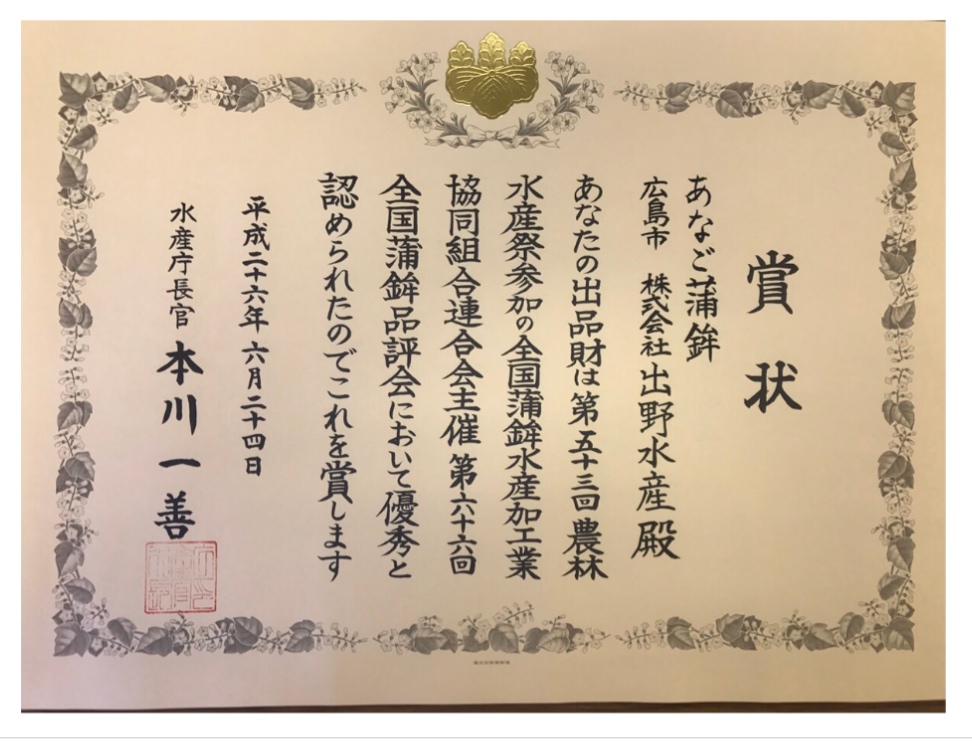 賞状
あなご蒲鉾
広島市 株式会社出野水産殿
あなたの出品財は第五十三回農林
水産祭参加の全国蒲鉾水産加工業
協同組合連合会主催第六十六回
全国蒲鉾品評会において優秀と
認められたのでこれを賞します
平成二十六年六月二十四日
水産庁長官 本川一善